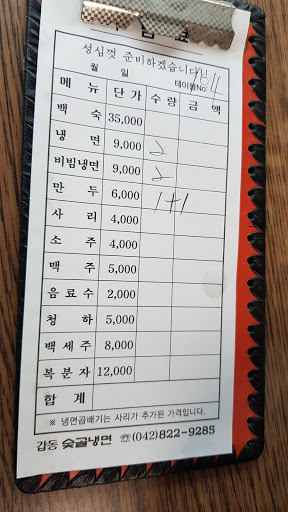 성심껏 준비하겠습니다!
월 일 테이블No:
메 뉴 단 가 수 량 금 액
백 숙 35,000
냉 면 9,000 2
비빔냉면 9,000 2
만 두 6,000 1+1
사 리 4,000
소 주 4,000
맥 주 5,000
음 료 수 2,000
청 하 5,000
백 세 주 8,000
복 분 자 12,000
합 계
※ 냉면곱배기는 사리가 추가된 가격입니다.
갑동 숯골냉면 ☏(042)822-9285